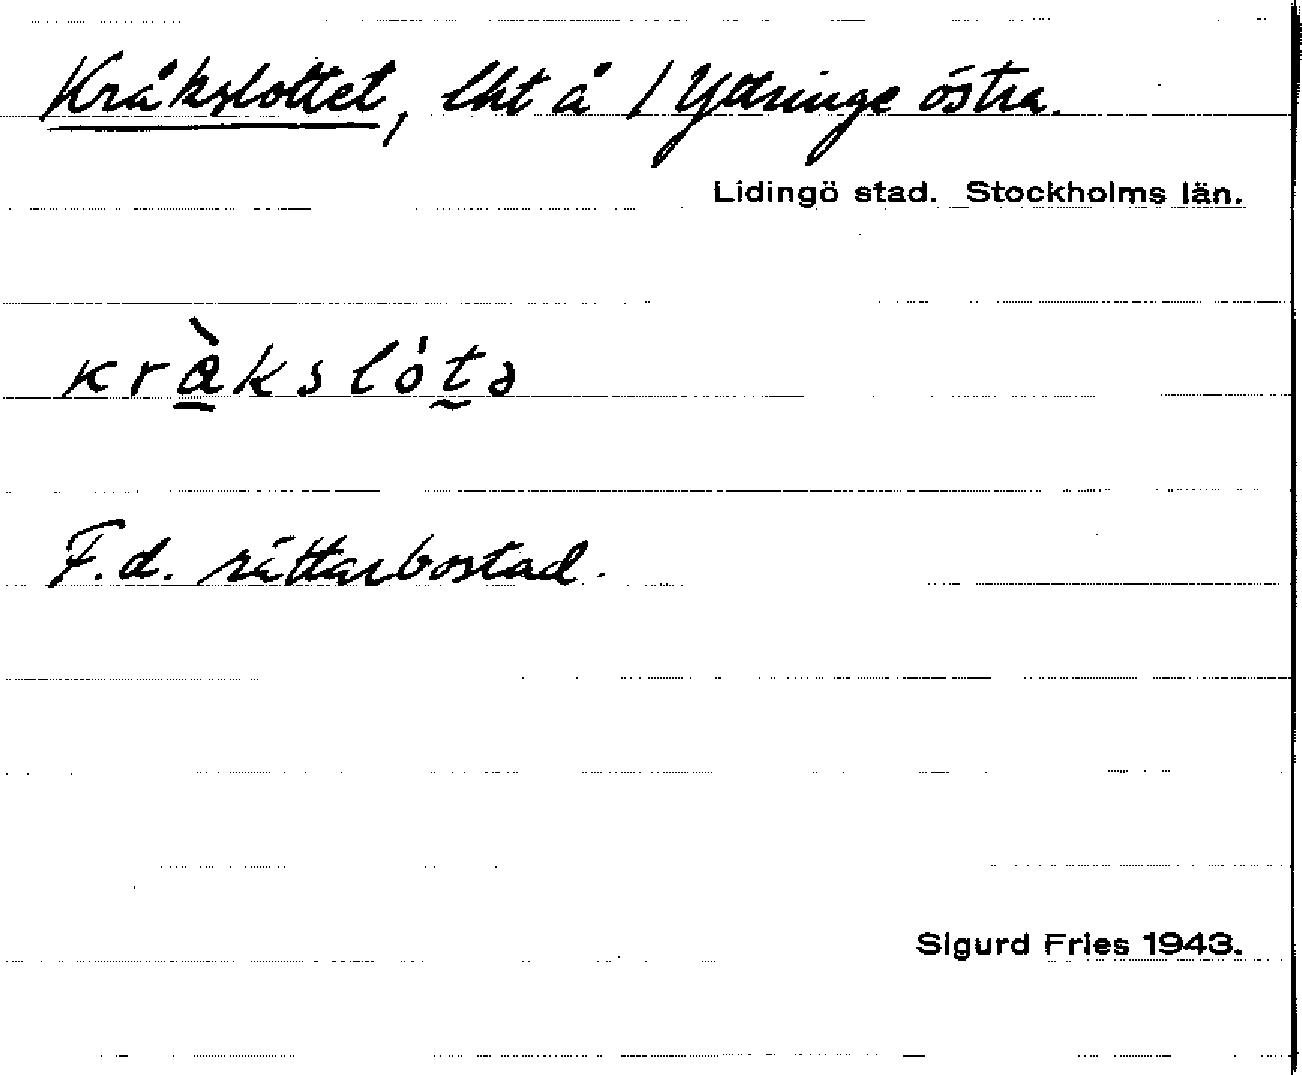 Kråkslottet, lht å 1 Yttringe östra.
Lidingö stad. Stockholms län.
kràkslótə
F.d. rättarbostad.
Sigurd Fries 1943.